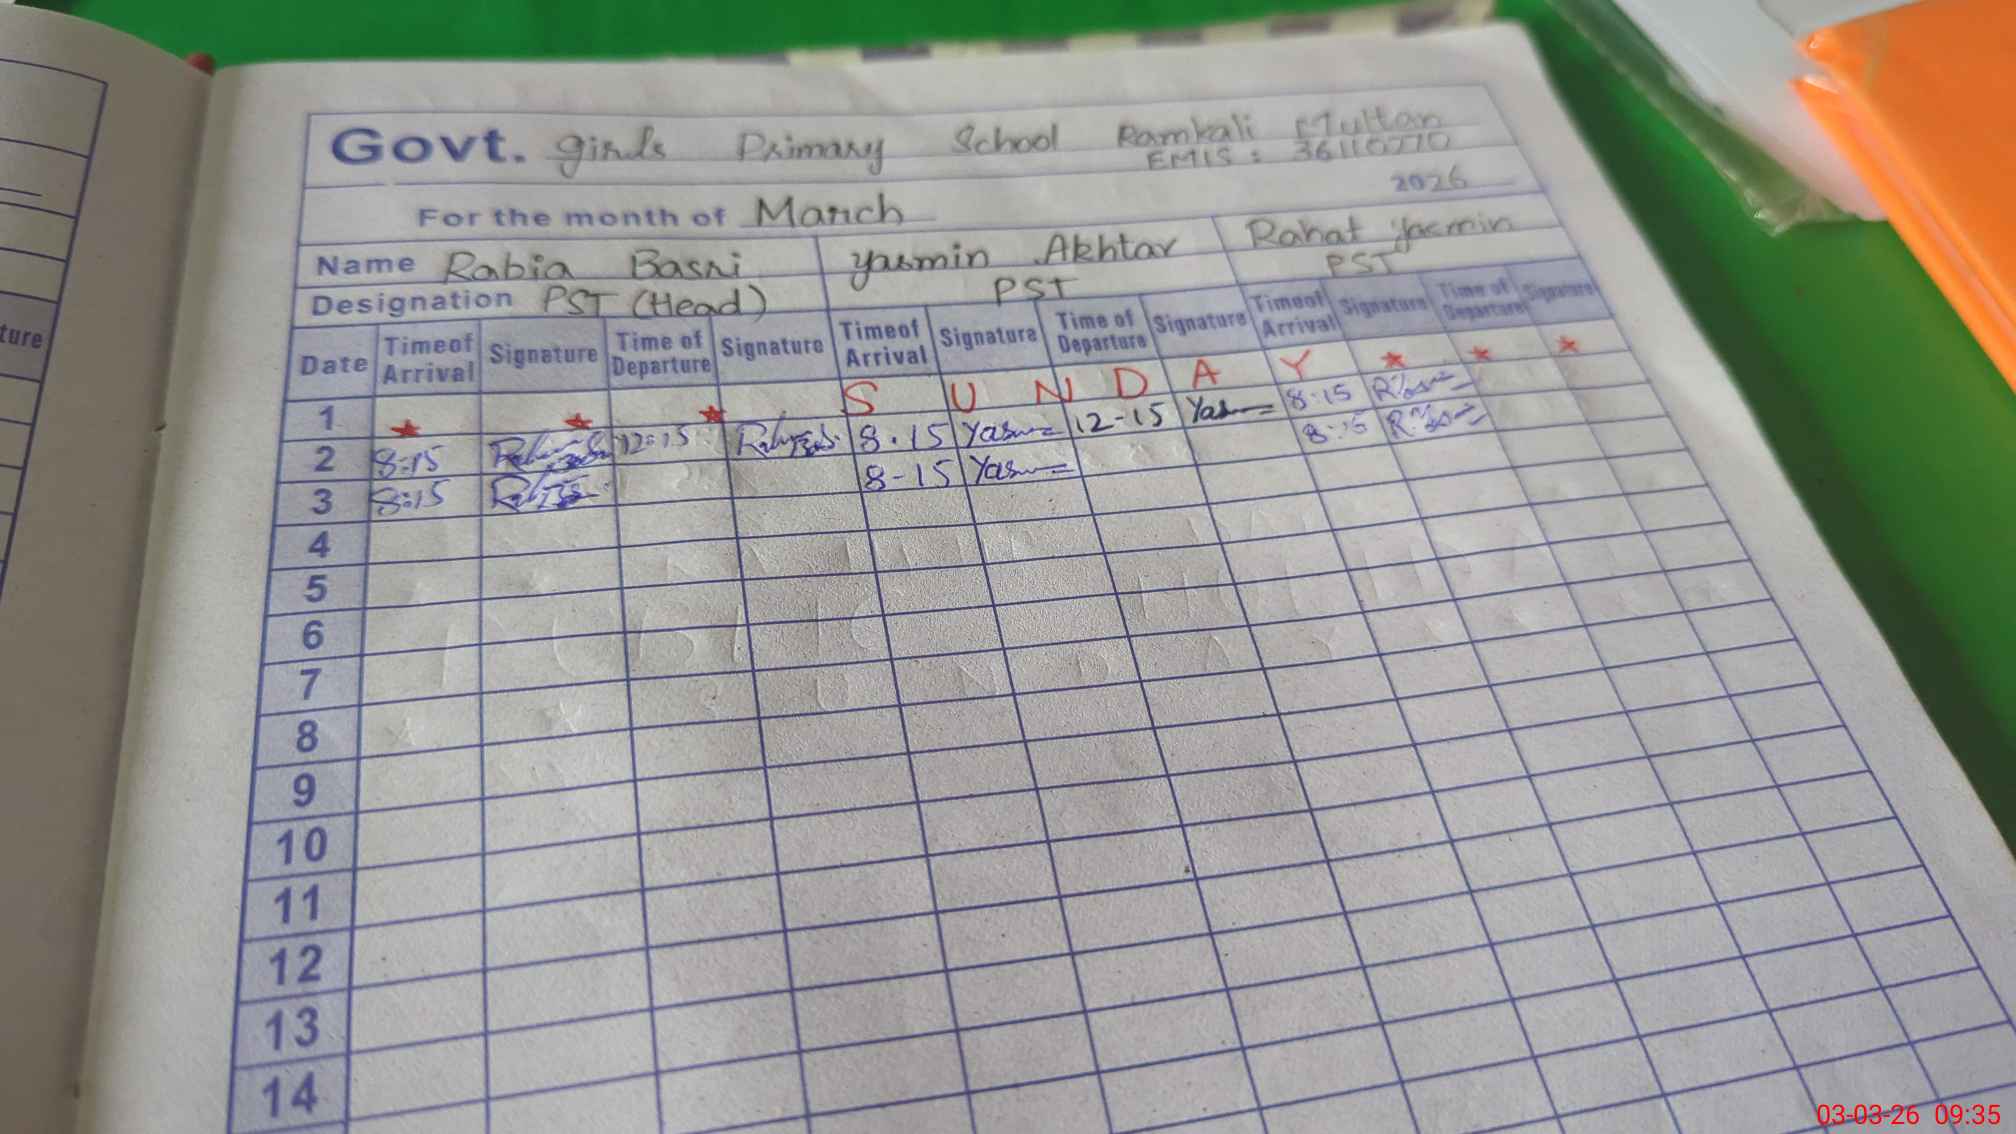 Govt. Girls Primary School Ramkali Multan
EMIS : 36110770
For the month of March 2026
Name Rabia Basri Yasmin Akhtar Rahat Yasmin
Designation PST (Head) PST PST
Date Timeof Arrival Signature Time of Departure Signature Timeof Arrival Signature Time of Departure Signature Timeof Arrival Signature Time of Departure Signature
1 S U N D A Y
2 8:15 12:15 8.15 Yas 12-15 Yas 8:15
3 8:15 8-15 Yas 8:15
4
5
6
7
8
9
10
11
12
13
14
ture
03-03-26 09:35